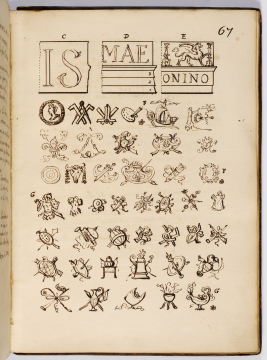 67
C D E
IS
MAE
ONINO
F
G